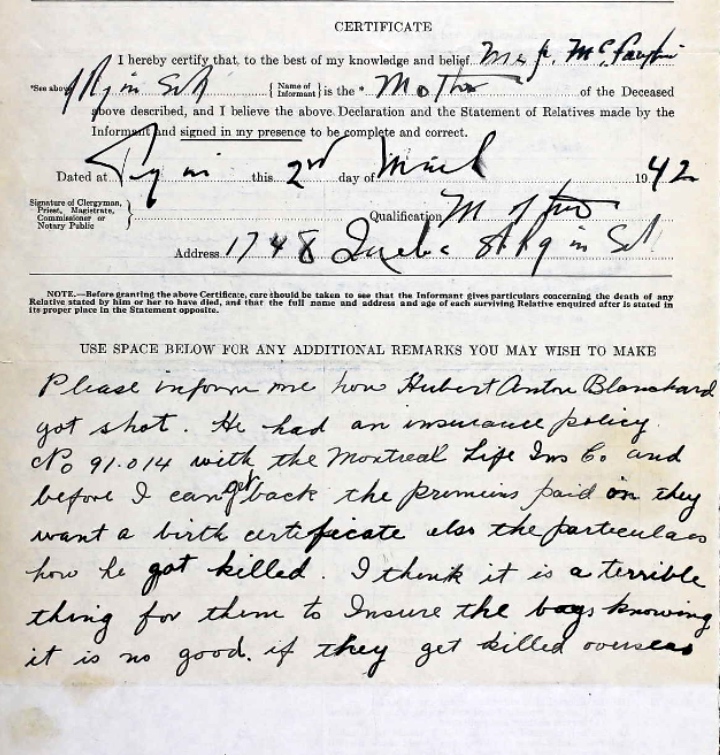 CERTIFICATE
I hereby certify that, to the best of my knowledge and belief
*See above { Name of Informant } is the * Mother of the Deceased
above described, and I believe the above Declaration and the Statement of Relatives made by the
Informant and signed in my presence to be complete and correct.
Dated at this 2nd day of March 1942
Signature of Clergyman,
Priest, Magistrate,
Commissioner or
Notary Public } Qualification
Address 1748 Quebec St
NOTE.—Before granting the above Certificate, care should be taken to see that the Informant gives particulars concerning the death of any
Relative stated by him or her to have died, and that the full name and address and age of each surviving Relative enquired after is stated in
its proper place in the Statement opposite.
USE SPACE BELOW FOR ANY ADDITIONAL REMARKS YOU MAY WISH TO MAKE
Please inform me how Hubert Anton Blanchard
got shot. He had an insurance policy.
No 91.014 with the Montreal Life Ins Co and
before I can get back the premiums paid on they
want a birth certificate also the particulars
how he got killed. I think it is a terrible
thing for them to Insure the boys knowing
it is no good. if they get killed overseas